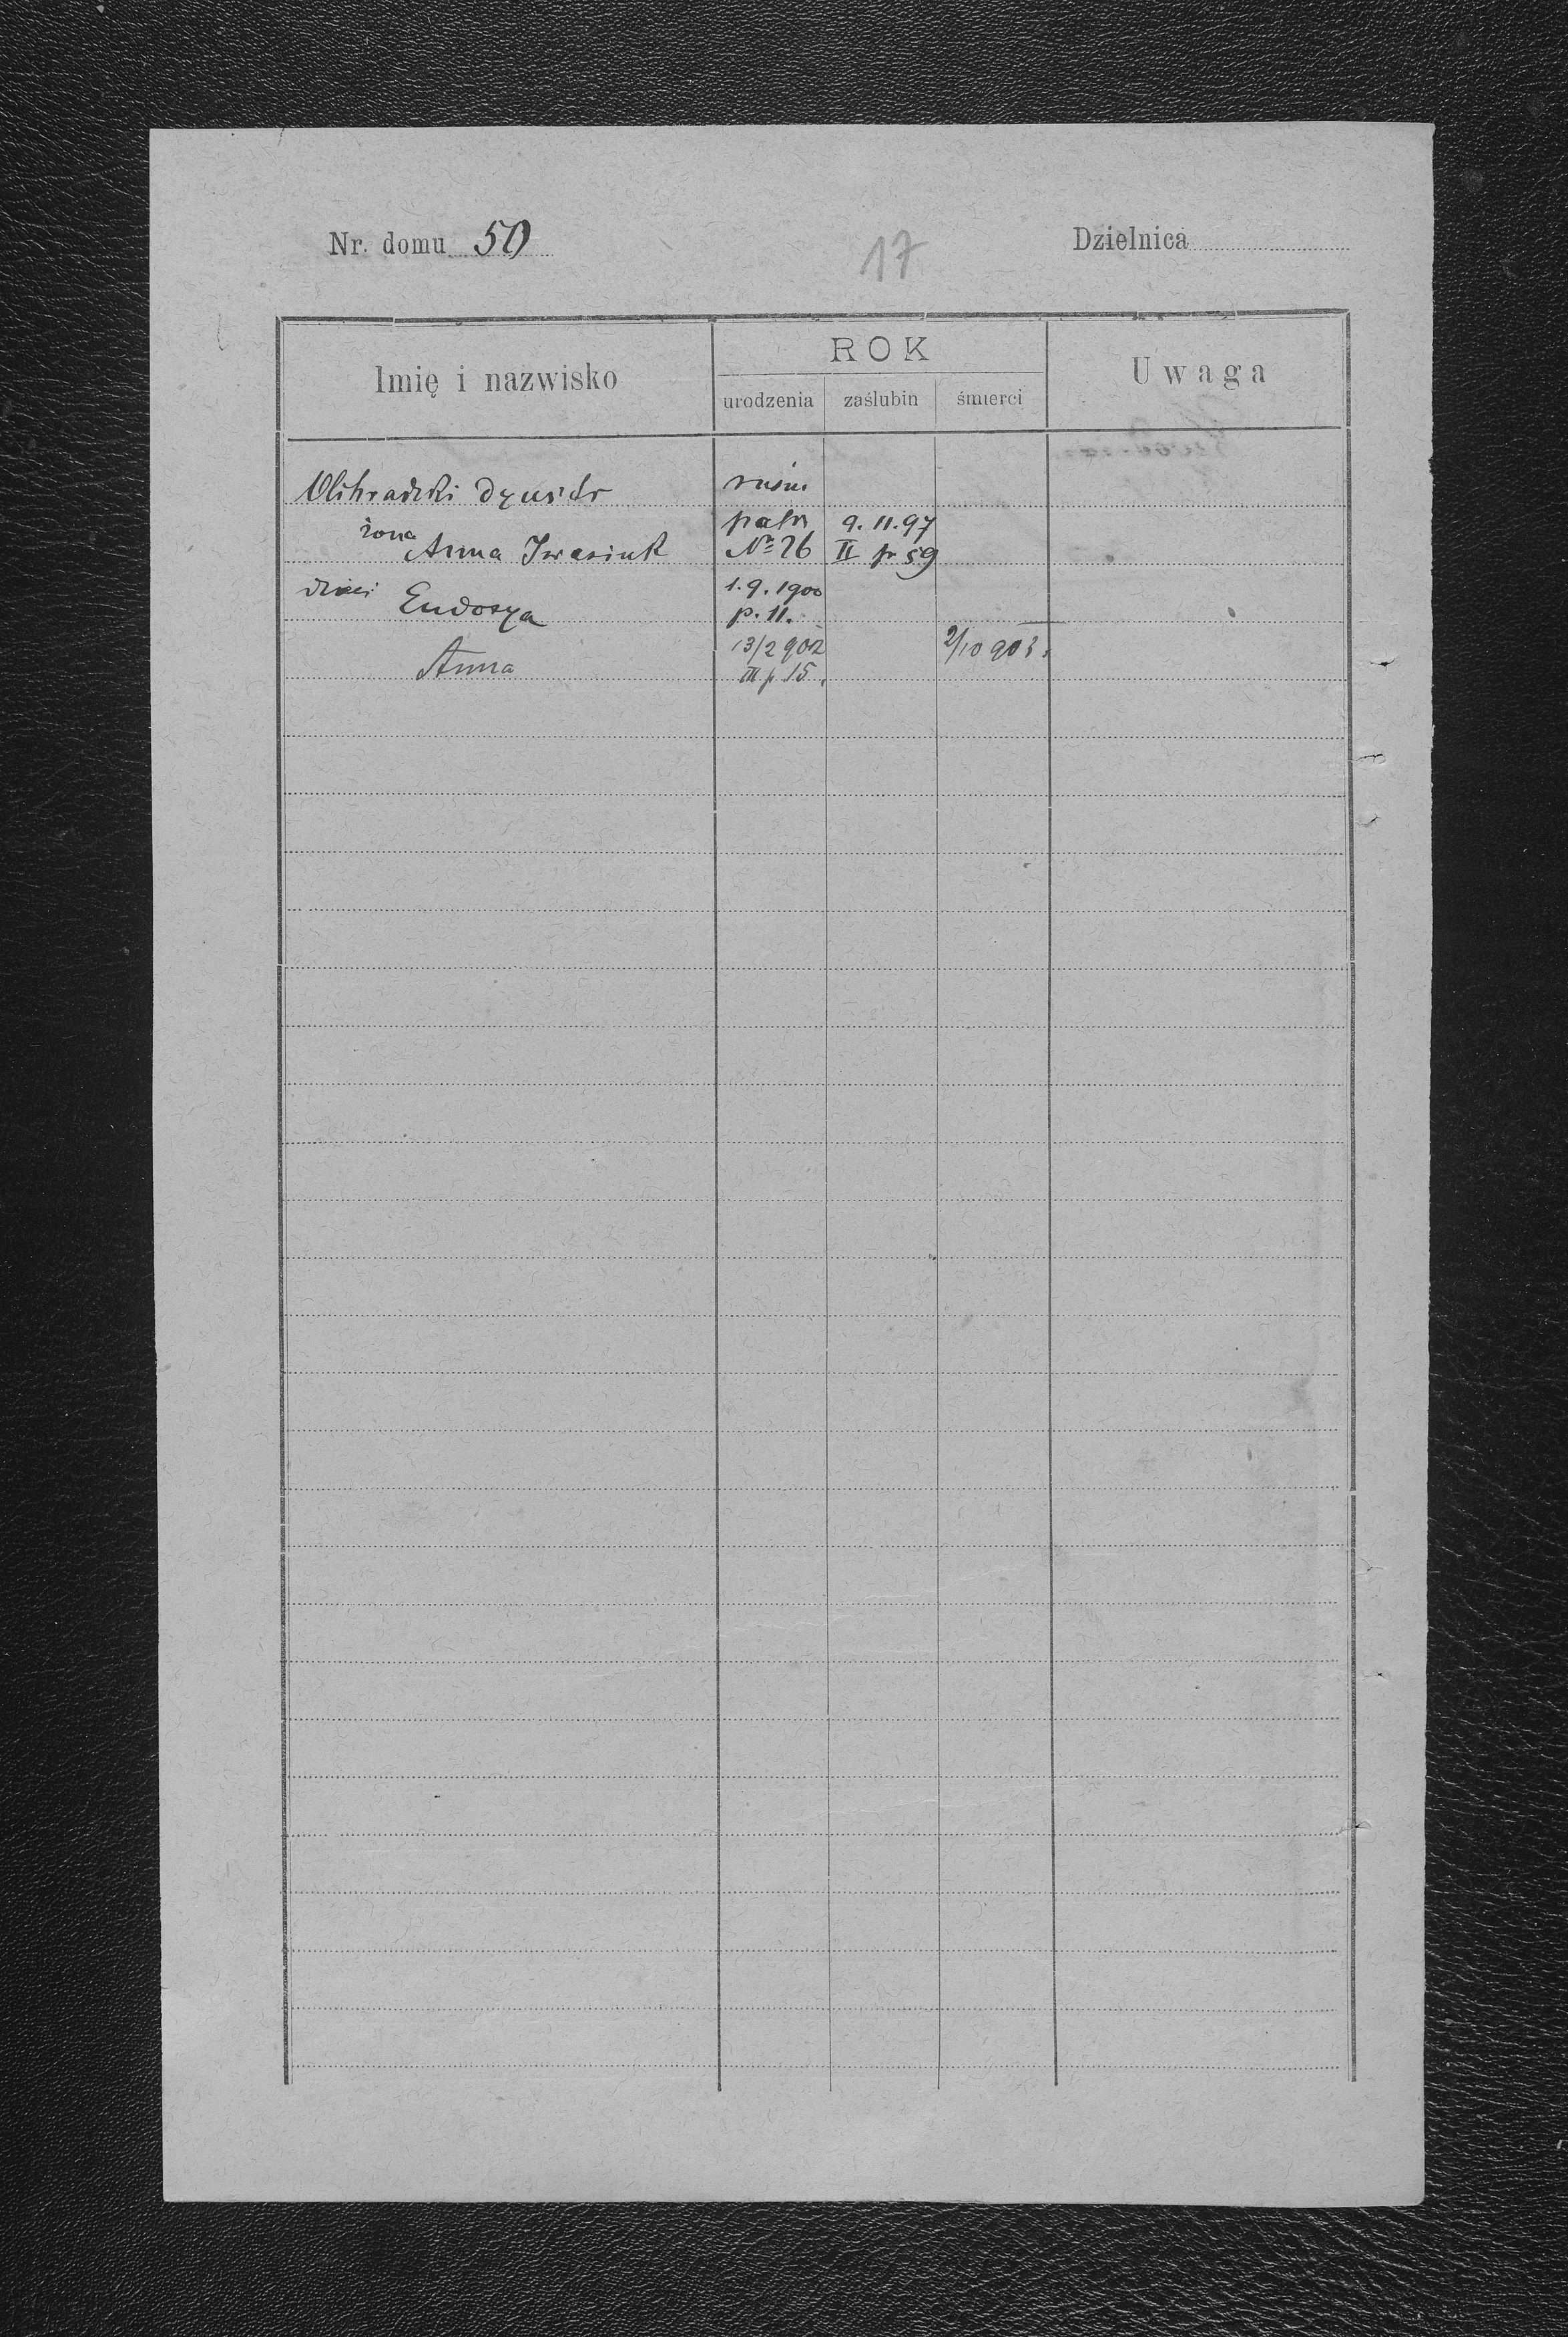 Nr. domu 50
17
Dzielnica
Imię i nazwisko
ROK
urodzenia zaślubin śmierci
Uwaga
patr 9.11.97
żona Anna Iwasiuk № 26 II p 59
dzieci 1.9.1900
Eudosya p. 11.
13/2 902 2/10 903.
Anna III p 15.